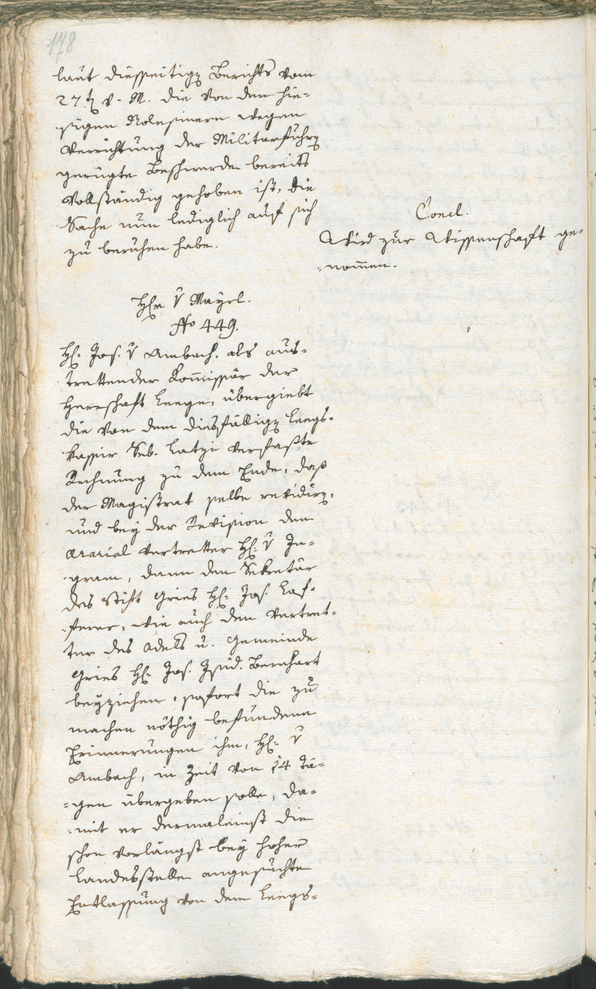 178
laut diesseitigen Berichts vom
27t v. M. die von den hie=
sigen Rolesinern wegen
Verrichtung der Militarfuhren
gerügte Beschwerde bereits
vollständig gehoben ist, die
Sache nun lediglich auf sich
zu beruhen habe.
Concl.
Wird zur Wissenschaft ge=
=nommen.
H v Mayrl.
No 449.
H: Jos. v Ambach, als aus=
trettender Kommissär der
Herrschaft Leege, übergiebt
die von dem diesfälligen Leegs=
Kassir Seb. Latzi verfaßte
Rechnung zu dem Ende, daß
der Magistrat selbe revidiren,
und bey der Revision den
Ararial Vertretter H: v In=
gram, dann den Sekretär
des Stift Gries H: Jos. Laf=
ferer, wie auch den Vertret=
ter des Adels u. Gemeinde
Gries H: Jos. Isid. Bernhart
beyziehen, sofort die zu
machen nöthig befundene
Erinnerungen ihm, H: v
Ambach, in Zeit von 14 Tä=
=gen übergeben solle, da=
=mit er dermaleinst die
schon vorlängst bey hoher
Landesstelle angesuchte
Entlassung von dem Leegs=